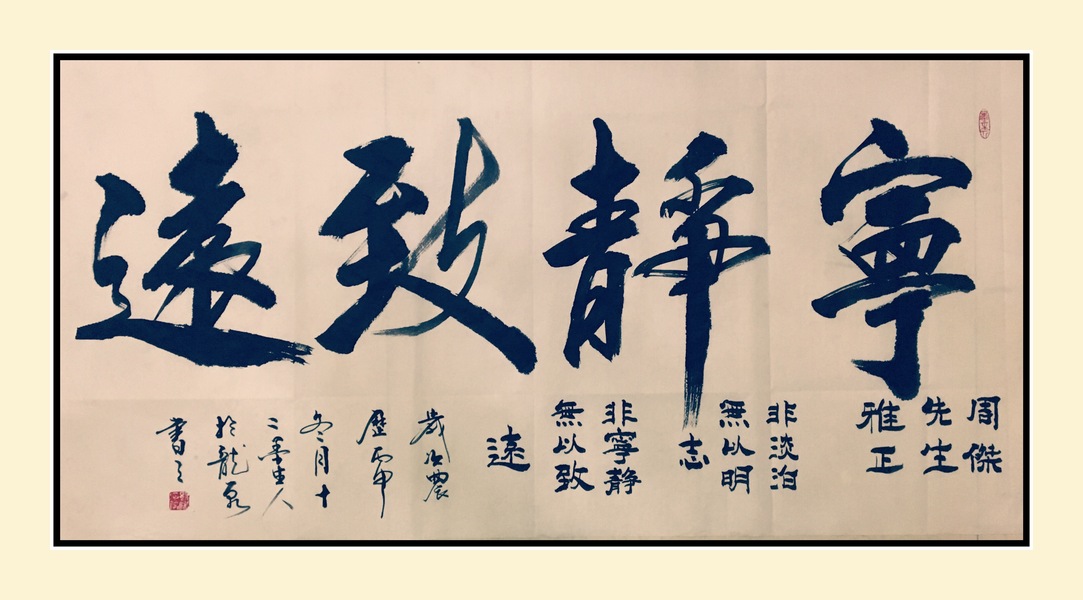 寧靜致遠
周傑
先生
雅正
非淡泊
無以明
志
非寧静
無以致
遠
歲次農
歷丙申
冬月十
二墨人
於龍泉
書之